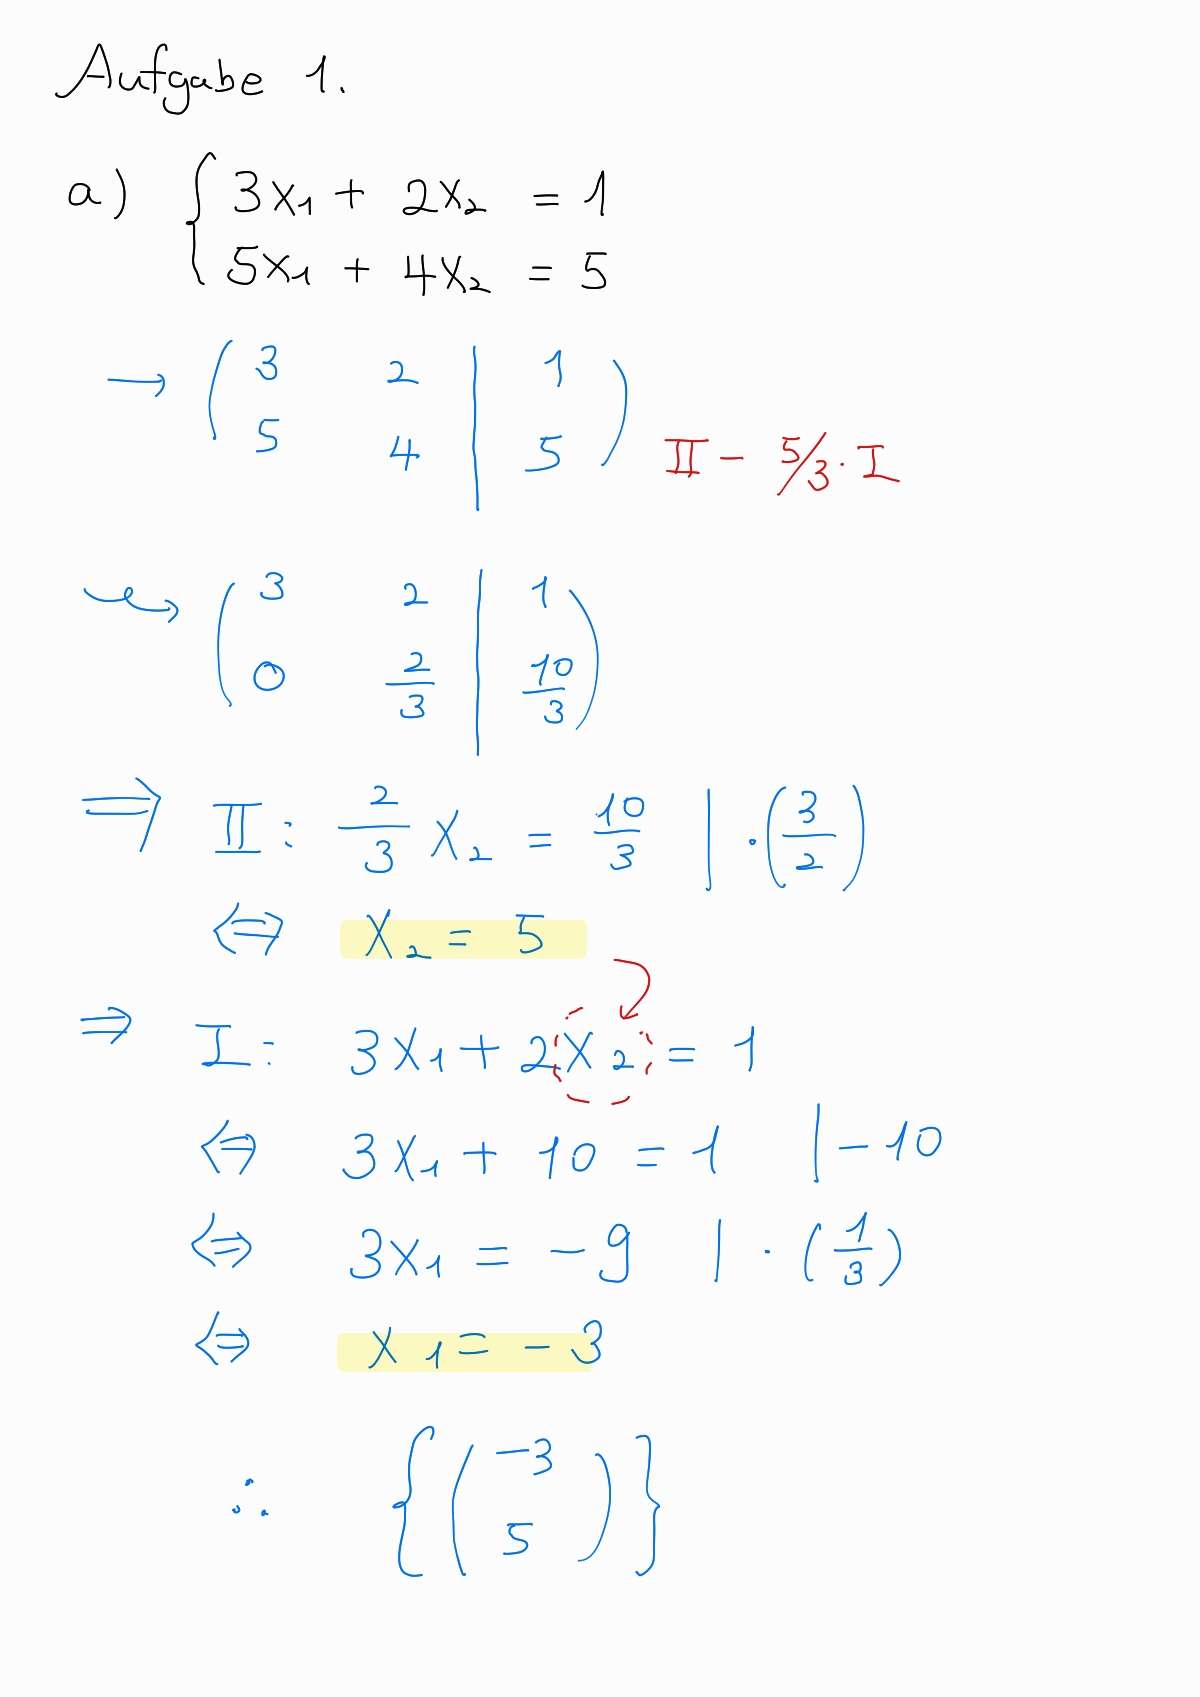 Aufgabe 1.
a) { 3x₁ + 2x₂ = 1
5x₁ + 4x₂ = 5
→ ( 3 2 | 1
5 4 | 5 ) II - 5/3 · I
⇝ ( 3 2 | 1
0 2/3 | 10/3 )
⇒ II: 2/3 x₂ = 10/3 | · (3/2)
⇔ x₂ = 5
⇒ I: 3x₁ + 2x₂ = 1
⇔ 3x₁ + 10 = 1 | - 10
⇔ 3x₁ = -9 | · (1/3)
⇔ x₁ = -3
∴ { ( -3
5 ) }